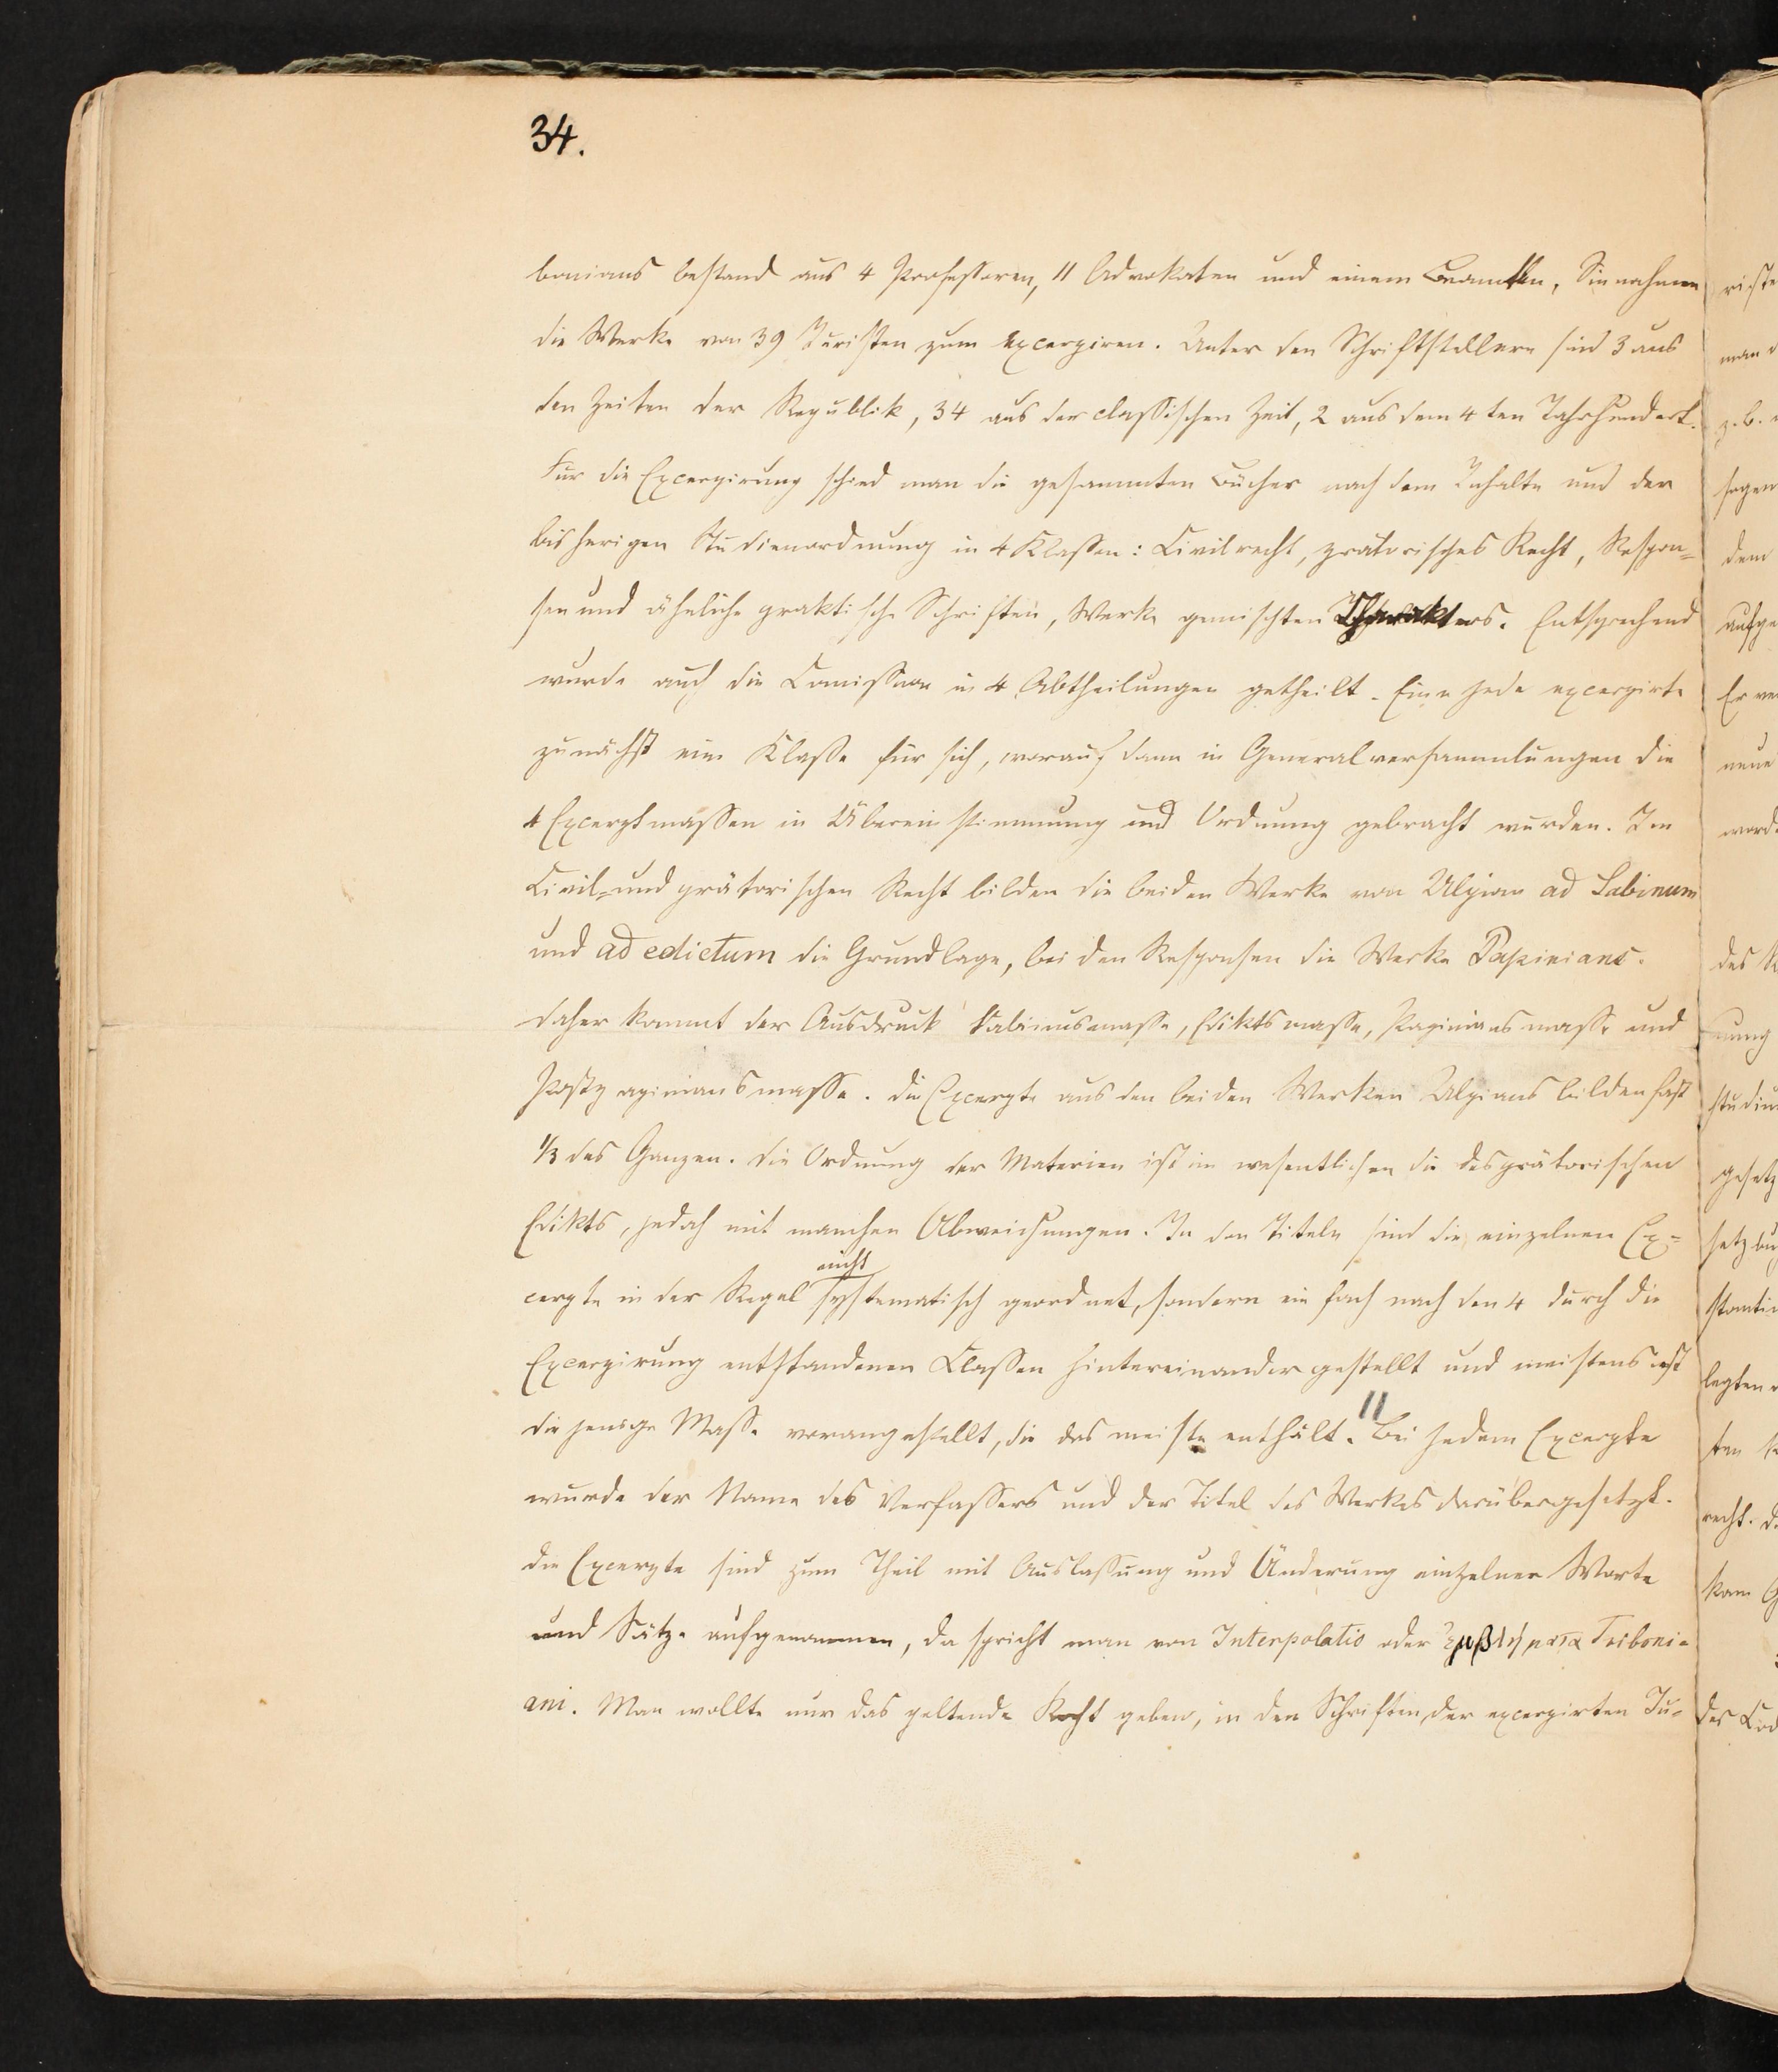 34.
bonians bestand aus 4 Professoren, 11 Advokaten und einem Beamten, Sie nahmen
die Werke von 39 Juristen zum excerpiren. Unter den Schriftstellern sind 3 aus
den Zeiten der Republik, 34 aus der classischen Zeit, 2 aus dem 4ten Jahrhundert.
Für die Excerpirung schied man die gesammten Bücher nach dem Inhalte und der
bisherigen Studienordnung in 4 Klassen: Civilrecht, prätorisches Recht, Respon=
sen und ähnliche praktische Schriften, Werke gemischten Charakters. Entsprechend
wurde auch die Comission in 4 Abtheilungen getheilt. Eine jede excerpirte
zunächst eine Klasse für sich, worauf dann in Generalversammlungen die
4 Excerptmassen in Übereinstimmung und Ordnung gebracht wurden. Im
Civil= und prätorischen Recht bilden die beiden Werke von Ulpian ad Sabinum
und ad edictum die Grundlage, bei den Responsen die Werke Papinians.
daher kommt der Ausdruck Sabinusmasse, Ediktsmasse, Papiniansmasse und
Postpapiniansmasse. die Excerpte aus den beiden Werken Ulpians bilden fast
1/3 des Ganzen. die Ordnung der Materien ist im wesentlichen die des prätorischen
Edikts, jedoch mit manchen Abweichungen. In den Titeln sind die einzelnen Ex=
nicht
cerpte in der Regel systematisch geordnet, sondern einfach nach den 4 durch die
Excerpirung entstandenen Classen hintereinander gestellt und meistens ist
die jenige Masse vorangestellt, die das meiste enthält. Bei jedem Excerpte
wurde der Name des Verfassers und der Titel des Werkes darübergesetzt.
die Excerpte sind zum Theil mit Auslassung und Änderung einzelner Worte
und Sätze aufgenommen, da spricht man von Interpolatio oder ἐμβλήματα Triboni=
ani. Man wollte nur das geltende Recht geben, in den Schriften der excerpirten Ju=